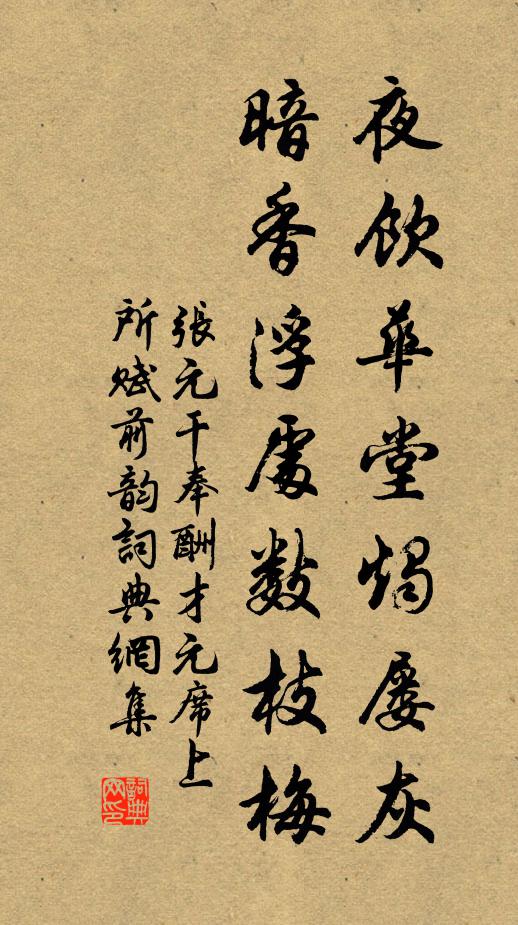 夜飲華堂燭屢灰
暗香浮處數枝梅
張元干奉酬才元席上
所賦前韵詞典網集
詞典
网印